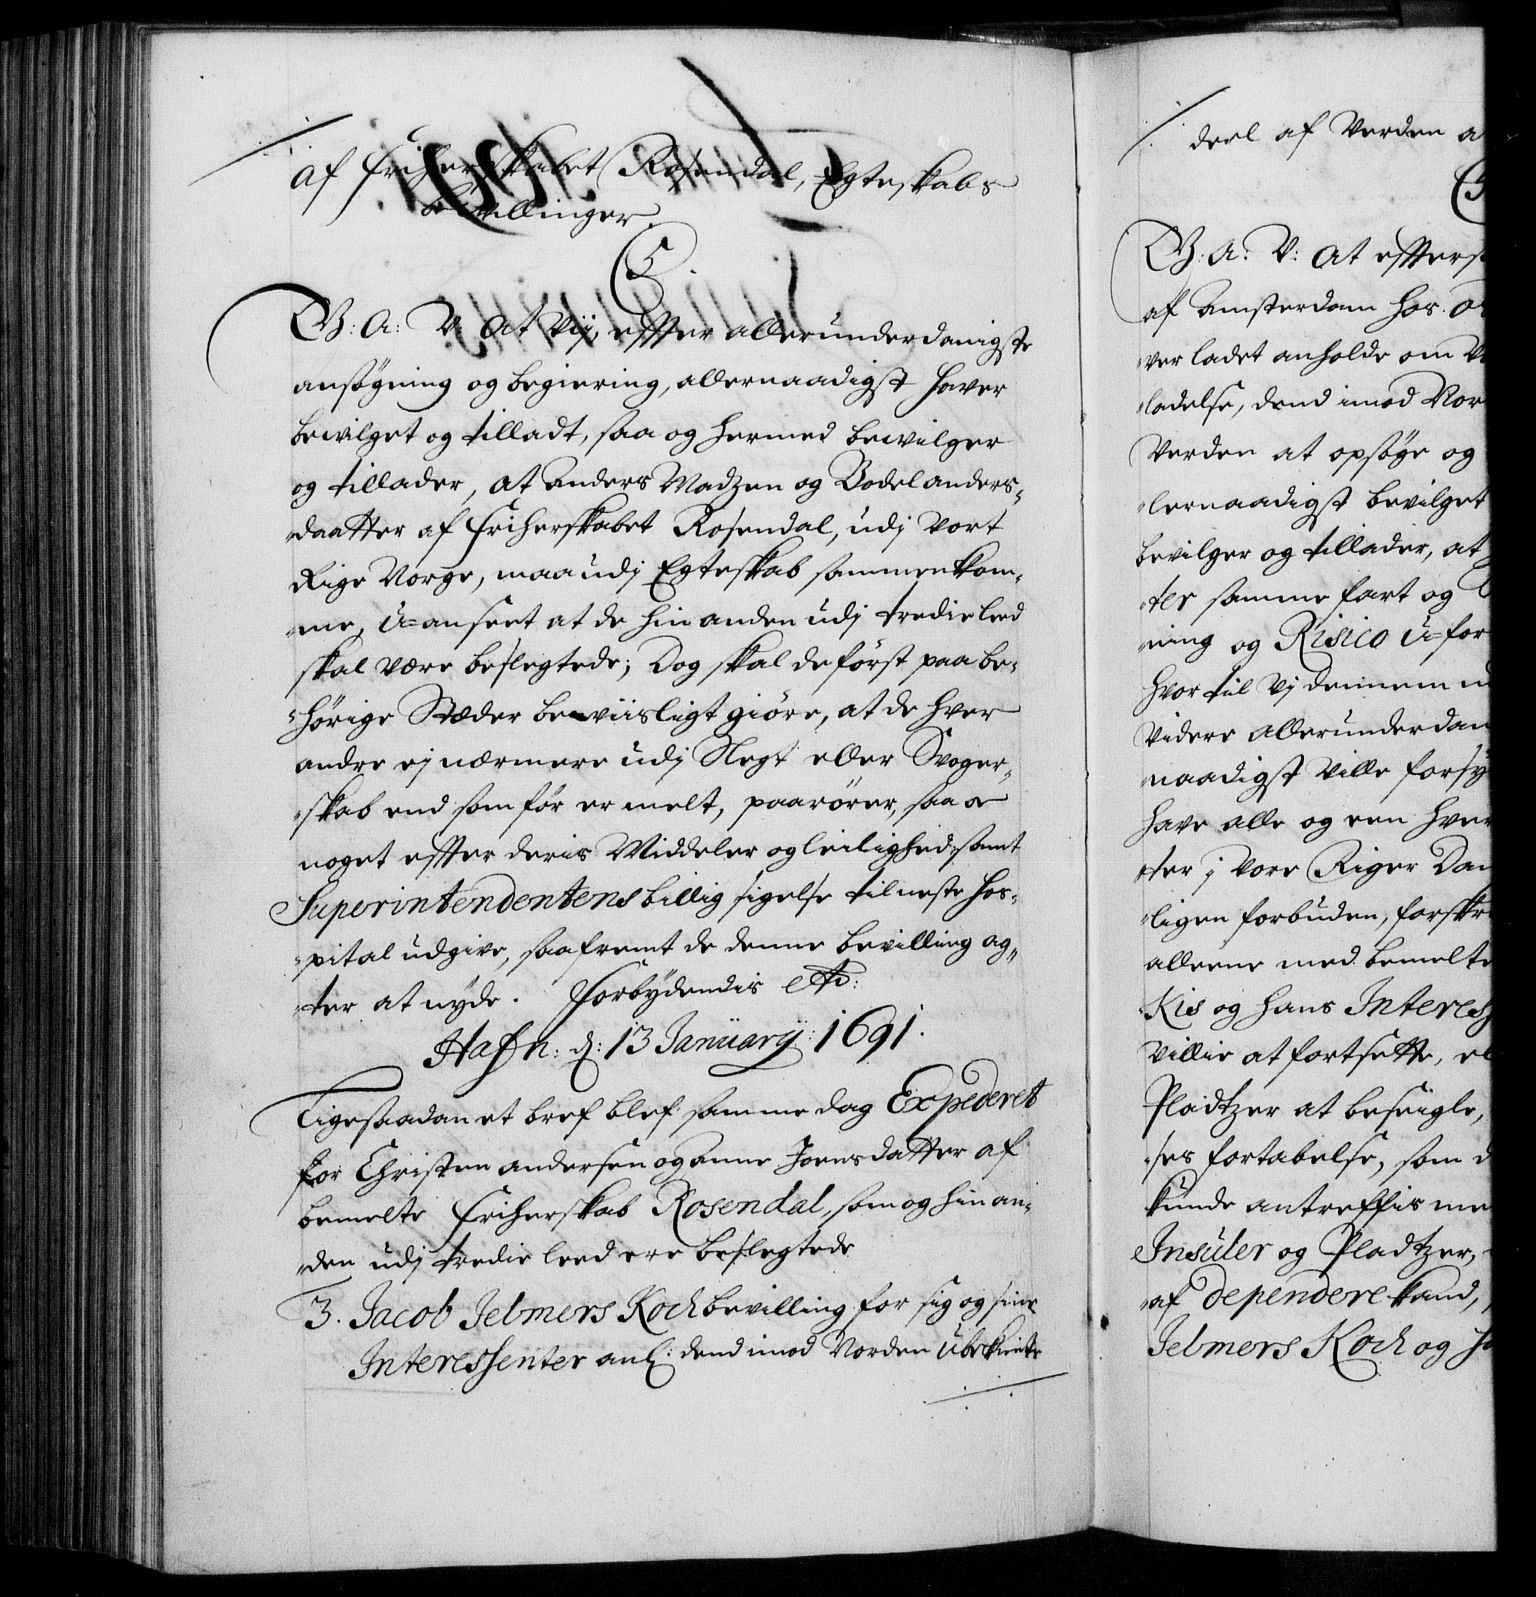 af friherskabet Rosendal, Egteskabs
bevillinger
C5
G: A: V: At Vij, effter allerunderdanigste
ansøgning og begiering, allernaadigst hafver
bevilget og tilladt, saa og hermed bevilger
og tillader, at Anders Madzen og Bodel Anders„
„daatter af friherskabet Rosendal, udj Vort
Rige Norge, maa udj Egteskab sammenkom„
„me, U=anseet at de hin anden udj tredie leed
skal være beslegtede; Dog skal de först paa be„
„hörige Stæder beviisligt giöre, at de hver
andre ej nærmere udj Slegt eller Svoger„
„skab end som før er melt, paarörer, saa og
noget effter deris Middeler og leilighed samt
Superintendentens billig sigelse til neste Hos„
„pital udgive, saafremt de denne bevilling ag„
„ter at nyde. Forbydendis etc:
Hafn: d: 13 Januarij: 1691.
Ligesaadan et bref blef samme dag Expederet
for Christen Andersen og Anne Joensdatter af
bemelte friherskab Rosendal, som og hin an„
„den udj tredie leed ere beslegtede
3. Jacob Jelmers Kock bevilling for sig og sine
Interessenter anl: dend imod Norden Ubekiente
deel af Verden
G: A: V: At effters
af Amsterdam hos
„ver ladet anholde om
„ladelse, dend imod Nor
Verden at opsøge og
„lernaadigst bevilget
bevilger og tillader, at
„ter samme fart og
„ning og Risico U=for
hvor til Vj dennem
Videre allerunderdan
„naadigst Ville forsy
have alle og een hver
„ter j Vore Riger Dan
„ligen forbuden, forskr
alleene med bemelte
Kis og hans Interess
Villie at fortsette, el
Pladtzer at beseigle,
„ses fortabelse, som
kunde antreffis me
Insuler og Pladtzer,
„af dependere kand,
Jelmers Kock og